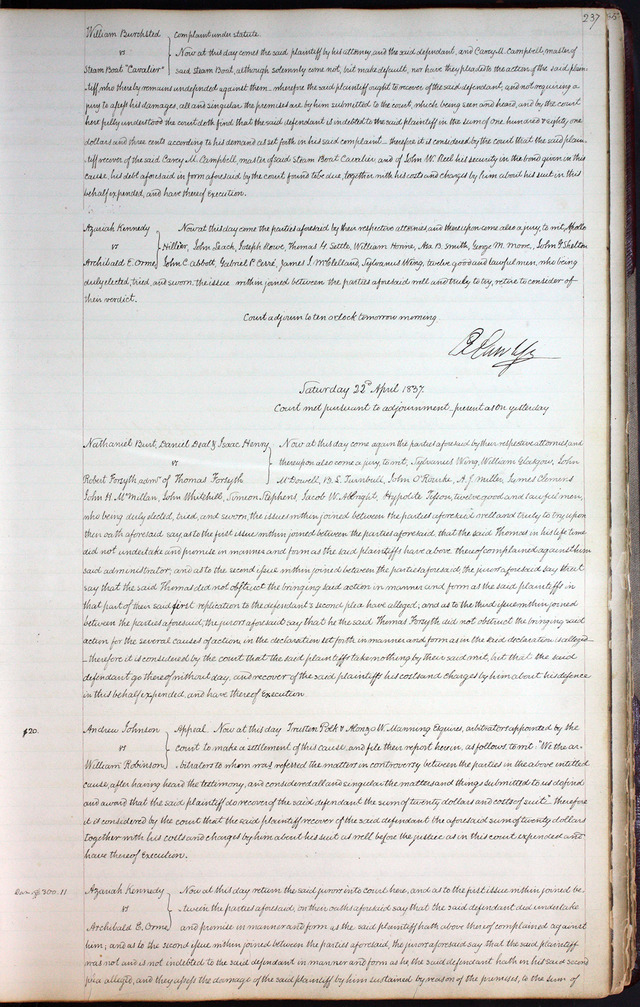 237
William Burchsted } Complaint under statute.
vs Now at this day comes the said plaintiff by his attorney, and the said defendant, and Carey M. Campbell, master of
Steam Boat "Cavalier" said Steam Boat, although solemnly come not, but make default, nor have they pleaded to the action of the said plain-
tiff, who thereby remains undefended against them. wherefore the said plaintiff ought to recover of the said defendant; and not requiring a
jury to assess his damages, all and singular the premises are by him submitted to the court, which being seen and heard, and by the court
here fully understood the court doth find that the said defendant is indebted to the said plaintiff in the sum of one hundred & eighty one
dollars and three cents according to his demand as set forth in his said complaint — therefore it is considered by the court that the said plain-
tiff recover of the said Carey M. Campbell, master of said Steam Boat Cavalier, and of John W. Reel his security in the bond given in this
cause, his debt aforesaid in form aforesaid by the court found to be due, together with his costs and charges by him about his suit in this
behalf expended, and have thereof Execution.
Azariah Kennedy } Now at this day come the parties aforesaid by their respective attornies and thereupon come also a jury, to wit, Apollo
vs John Leach, Joseph Rowe, Thomas H. Settle, William Horine, Asa B. Smith, George M. Moore, John G Shelton
Archibald E. Orme, John C. Abbott, Gabriel P. Cerré, James S. McClelland, Sylvanus Wing, twelve good and lawful men, who being
duly elected, tried, and sworn, the issue within joined between the parties aforesaid well and truly to try, retire to consider of
their verdict.
Court adjourn to ten o'clock tomorrow morning
Saturday 22d April 1837.
Court met pursuant to adjournment — present as on yesterday
Nathaniel Burt, Daniel Deal & Isaac Henry } Now at this day come again the parties aforesaid by their respective attornies and
vs thereupon also come a jury, to wit, Sylvanus Wing, William Glasgow, John
Robert Forsyth admr of Thomas Forsyth McDowell, B. L. Turnbull, John O'Rourke, A. J. Miller, James Clemens
John H. McMillan, John Whitehill, Simeon Stephens, Jacob W. Albright, Hypolite Tison, twelve good and lawful men,
who being duly elected, tried, and sworn, the issues within joined between the parties aforesaid well and truly to try, upon
their oath aforesaid say, as to the first issue within joined between the parties aforesaid, that the said Thomas in his life time
did not undertake and promise in manner and form as the said plaintiffs have above thereof complained against him
said administrator; and as to the second issue within joined between the parties aforesaid, the jurors aforesaid say that
say that the said Thomas did not obstruct the bringing said action in manner and form as the said plaintiffs in
that part of their said first replication to the defendant's second plea have alleged; and as to the third issue within joined
between the parties aforesaid, the jurors aforesaid say that he the said Thomas Forsyth did not obstruct the bringing said
action for the several causes of action, in the declaration set forth in manner and form as in the said declaration is alleged
— therefore it is considered by the court that the said plaintiffs take nothing by their said writ, but that the said
defendant go thereof without day, and recover of the said plaintiffs his costs and charges by him about his defence
in this behalf expended, and have thereof Execution
$20. Andrew Johnson } Appeal. Now at this day Trusten Polk & Alonzo W. Manning Esquires, arbitrators appointed by the
vs court to make a settlement of this cause, and file their report herein, as follows, to wit: "We the ar-
William Robinson bitrators to whom was referred the matters in controversy between the parties in the above intitled
cause, after having heard the testimony, and considered all and singular the matters and things submitted to us defined
and award that the said plaintiff do recover of the said defendant the sum of twenty dollars and costs of suit" — therefore
it is considered by the court that the said plaintiff recover of the said defendant the aforesaid sum of twenty dollars
together with his costs and charges by him about his suit as well before the justice as in this court expended and
have thereof Execution.
$300.11 Azariah Kennedy } Now at this day return the said jurors into court here, and as to the first issue within joined be-
vs tween the parties aforesaid, on their oaths aforesaid say that the said defendant did undertake
Archibald E. Orme and promise in manner and form as the said plaintiff hath above thereof complained against
him; and as to the second issue within joined between the parties aforesaid, the jurors aforesaid say that the said plaintiff
was not and is not indebted to the said defendant in manner and form as he the said defendant hath in his said second
plea alleged, and they assess the damage of the said plaintiff by him sustained by reason of the premises, to the sum of